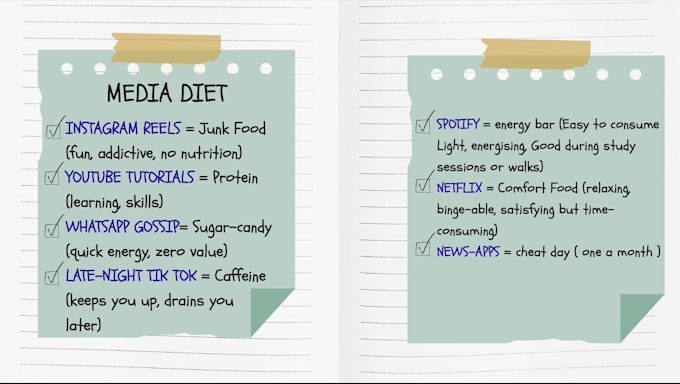 MEDIA DIET
INSTAGRAM REELS = Junk Food
(fun, addictive, no nutrition)
YOUTUBE TUTORIALS = Protein
(learning, skills)
WHATSAPP GOSSIP= Sugar-candy
(quick energy, zero value)
LATE-NIGHT TIK TOK = Caffeine
(keeps you up, drains you
later)
SPOTIFY = energy bar (Easy to consume
Light, energising, Good during study
sessions or walks)
NETFLIX = Comfort Food (relaxing,
binge-able, satisfying but time-
consuming)
NEWS-APPS = cheat day ( one a month )